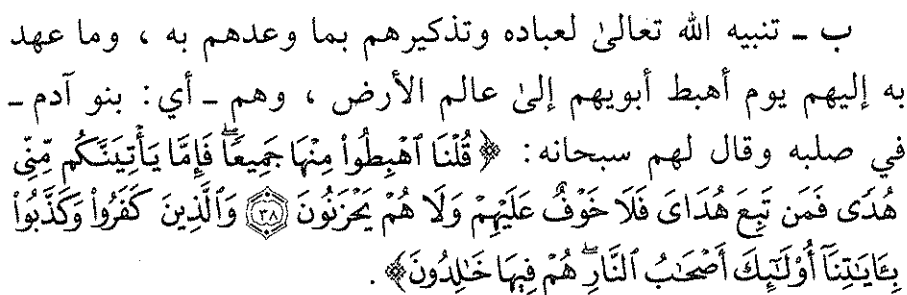 ب ـ تنبيه الله تعالىٰ لعباده وتذكيرهم بما وعدهم به ، وما عهد
به إليهم يوم أهبط أبويهم إلىٰ عالم الأرض ، وهم ـ أي : بنو آدم ـ
في صلبه وقال لهم سبحانه : ﴿قُلْنَا ٱهْبِطُوا۟ مِنْهَا جَمِيعًاۖ فَإِمَّا يَأْتِيَنَّكُم مِّنِّى
هُدًى فَمَن تَبِعَ هُدَاىَ فَلَا خَوْفٌ عَلَيْهِمْ وَلَا هُمْ يَحْزَنُونَ ٣٨ وَٱلَّذِينَ كَفَرُوا۟ وَكَذَّبُوا۟
بِـَٔايَٰتِنَآ أُو۟لَٰٓئِكَ أَصْحَٰبُ ٱلنَّارِۖ هُمْ فِيهَا خَٰلِدُونَ﴾ .